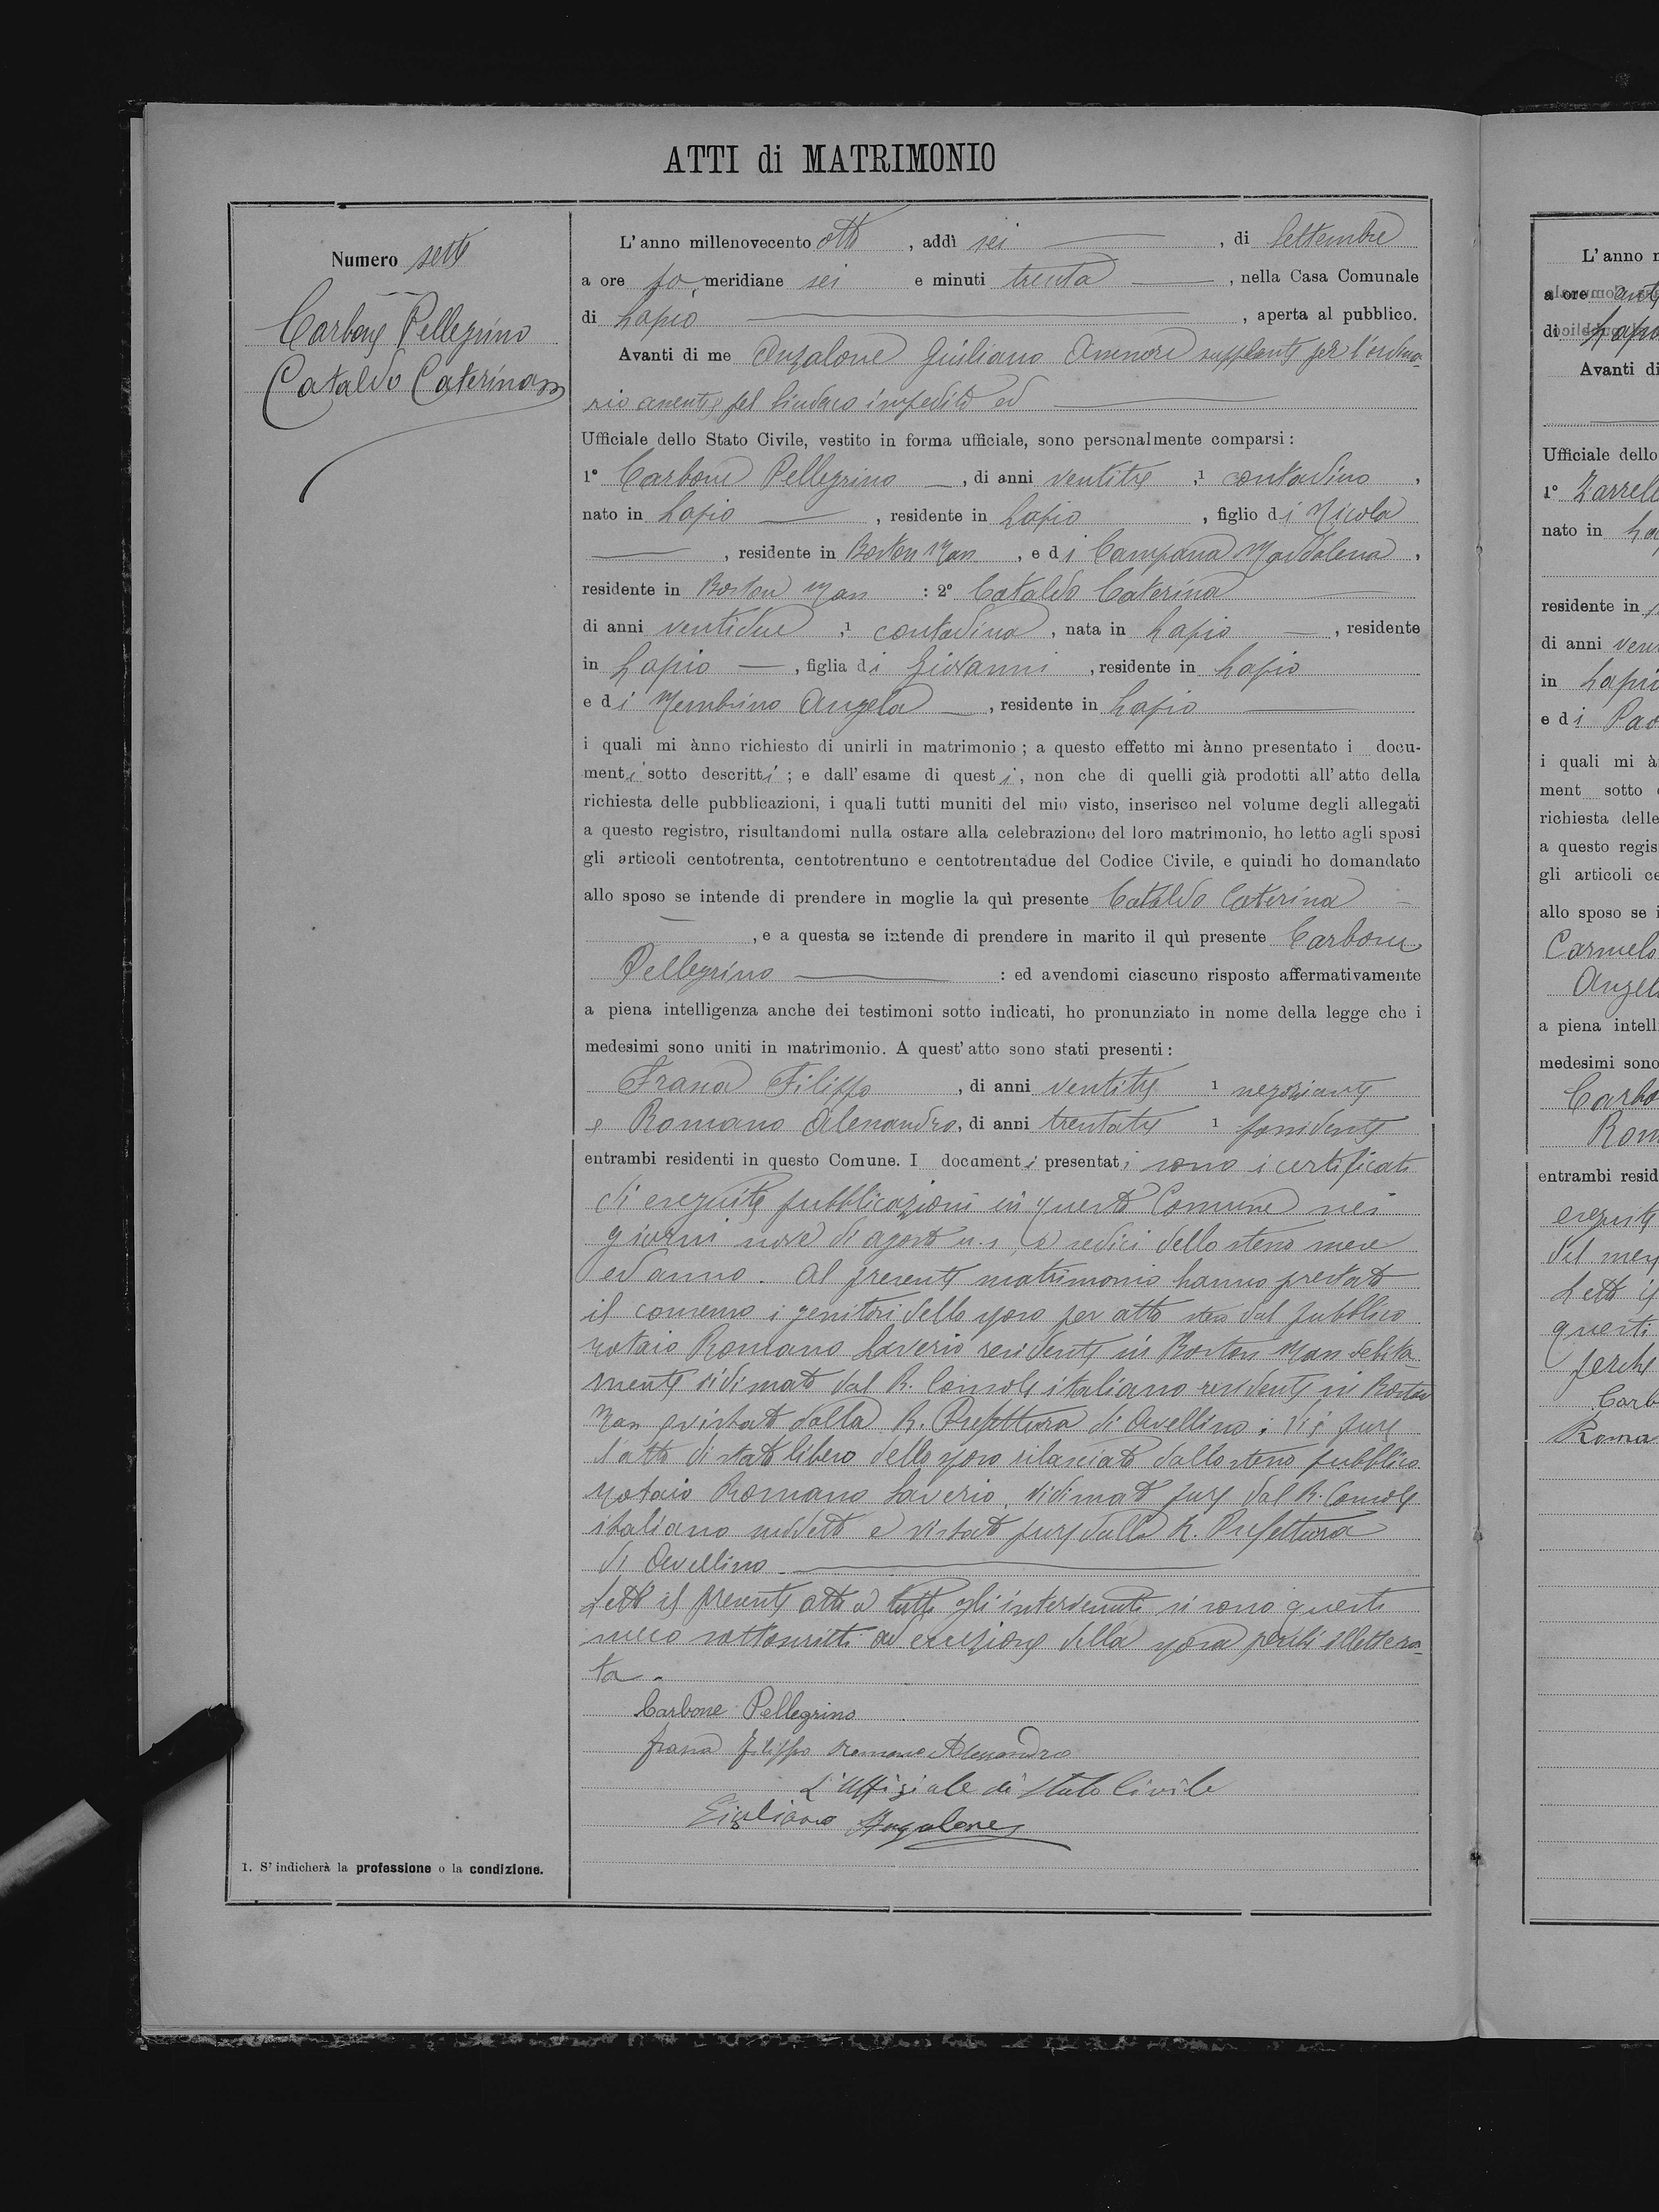 ATTI di MATRIMONIO
Numero sette
Carbone Pellegrino
Cataldo Caterina
1. S' indicherà la professione o la condizione.
L' anno millenovecento otto, addì sei, di Settembre
a ore po meridiane sei e minuti trenta, nella Casa Comunale
di Lapio, aperta al pubblico.
Avanti di me Anzalone Giuliano Assessore supplente per l'ordina-
rio assente, pel Sindaco impedito ed
Ufficiale dello Stato Civile, vestito in forma ufficiale, sono personalmente comparsi:
1° Carbone Pellegrino, di anni ventitre, 1 contadino,
nato in Lapio, residente in Lapio, figlio di Nicola
, residente in Boston Mass, e di Campana Maddalena,
residente in Boston Mass : 2° Cataldo Caterina
di anni ventidue, 1 contadina, nata in Lapio, residente
in Lapio, figlia di Giovanni, residente in Lapio
e di Membrino Angela, residente in Lapio
i quali mi ànno richiesto di unirli in matrimonio; a questo effetto mi ànno presentato i docu-
menti sotto descritti; e dall' esame di questi, non che di quelli già prodotti all' atto della
richiesta delle pubblicazioni, i quali tutti muniti del mio visto, inserisco nel volume degli allegati
a questo registro, risultandomi nulla ostare alla celebrazione del loro matrimonio, ho letto agli sposi
gli articoli centotrenta, centotrentuno e centotrentadue del Codice Civile, e quindi ho domandato
allo sposo se intende di prendere in moglie la quì presente Cataldo Caterina
, e a questa se intende di prendere in marito il quì presente Carbone
Pellegrino : ed avendomi ciascuno risposto affermativamente
a piena intelligenza anche dei testimoni sotto indicati, ho pronunziato in nome della legge che i
medesimi sono uniti in matrimonio. A quest' atto sono stati presenti:
Frasca Filippo, di anni ventitre 1 negoziante
e Romano Alessandro, di anni trentatre 1 possidente
entrambi residenti in questo Comune. I documenti presentati sono i certificati
di eseguite pubblicazioni in questo Comune nei
giorni nove di agosto u.s. e sedici dello stesso mese
ed anno. Al presente matrimonio hanno prestato
il consenso i genitori dello sposo per atto dal pubblico
notaio Romano Saverio residente in Boston Mass debita
mente vidimato dal R. Console italiano residente in Boston
Mass e vistato dalla R. Prefettura di Avellino; vi è pure
l'atto di stato libero dello sposo rilasciato dallo stesso pubblico
notaio Romano Saverio, vidimato pure dal R. Console
italiano suddetto e vistato pure dalla R. Prefettura
di Avellino
Letto il presente atto a tutti gli intervenuti si sono questi
meco sottoscritti ad eccezione della sposa perchè illettera-
ta.
Carbone Pellegrino
Filippo Romano Alessandro
L'Uffiziale di Stato Civile
Giuliano Anzalone
L' anno
a ore
di Lapio
Avanti di
Ufficiale dello
1°
nato in
residente in
di anni
in Lapio
e di
i quali mi
ment sotto
richiesta delle
a questo regis
gli articoli
allo sposo se
Carmelo
a piena
medesimi sono
entrambi resid